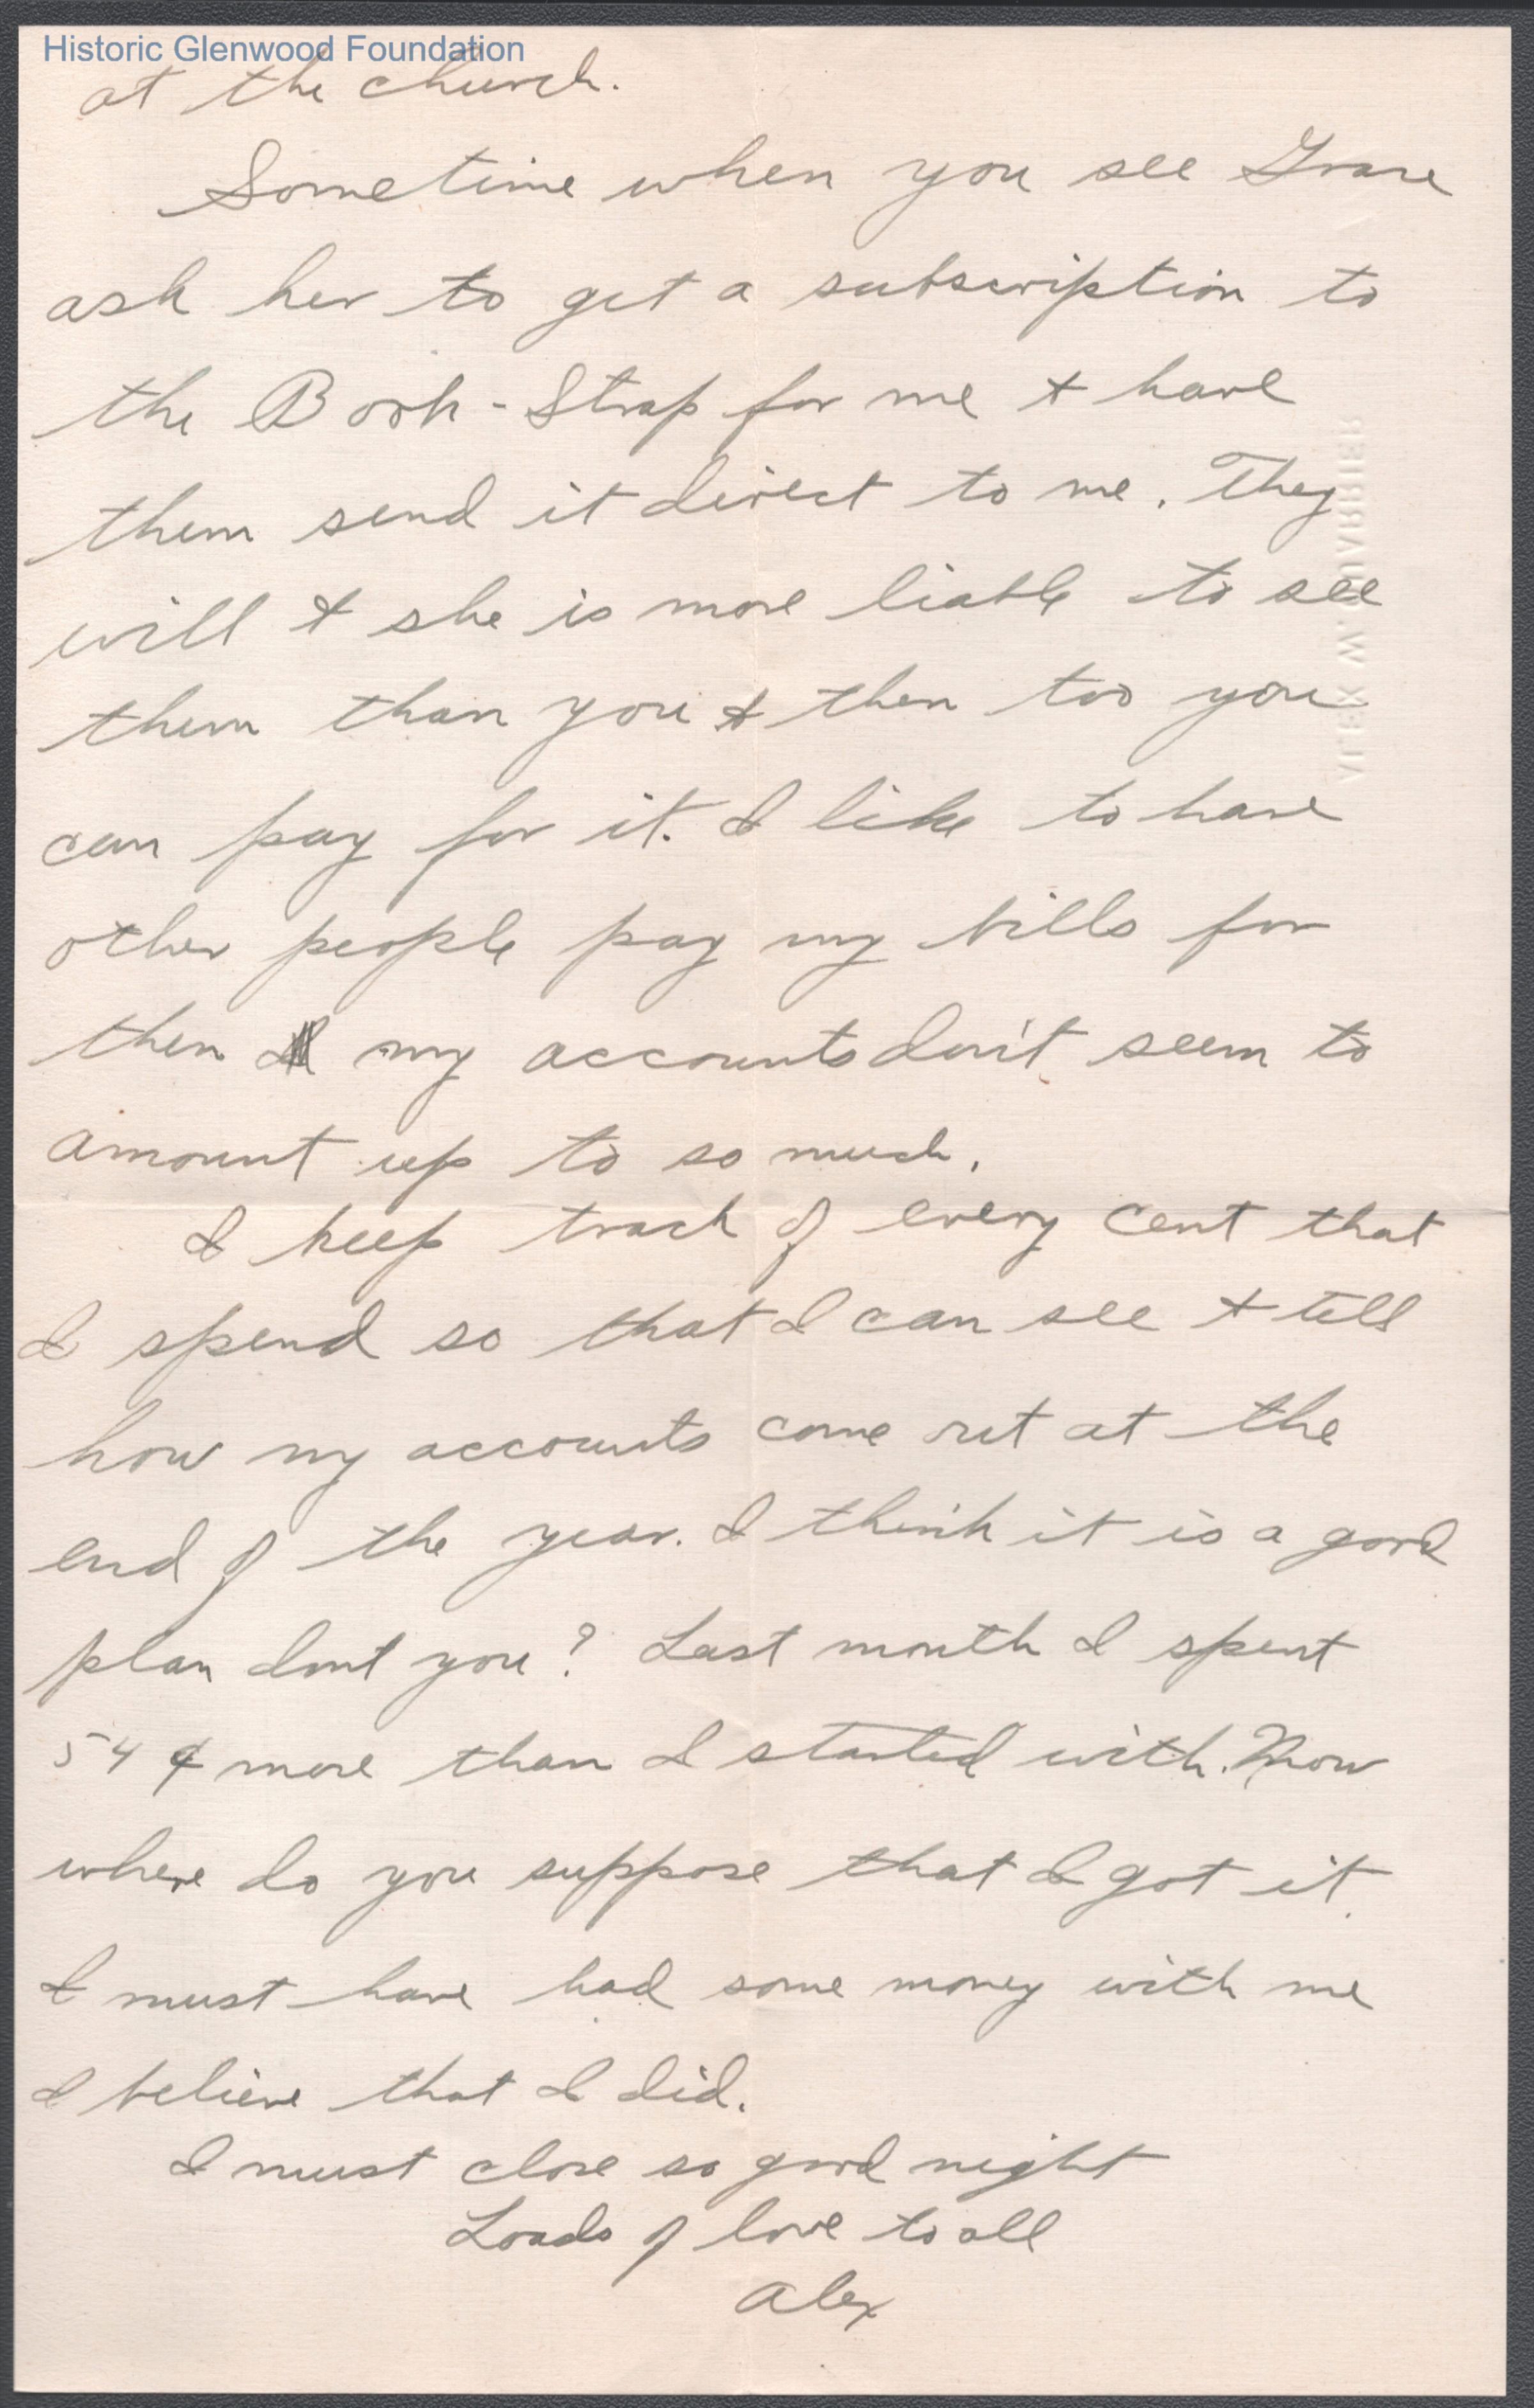 Historic Glenwood Foundation
at the church.
Sometime when you see Grace
ask her to get a subscription to
the Book-Strap for me & have
them send it direct to me. They
will & she is more liable to see
them than you & then too you
can pay for it. I like to have
other people pay my bills for
then my accounts don't seem to
amount up to so much.
I keep track of every cent that
I spend so that I can see & tell
how my accounts come out at the
end of the year. I think it is a good
plan dont you? Last month I spent
54 ¢ more than I started with. Now
where do you suppose that I got it
I must have had some money with me
I believe that I did.
I must close so good night
Loads of love to all
Alex